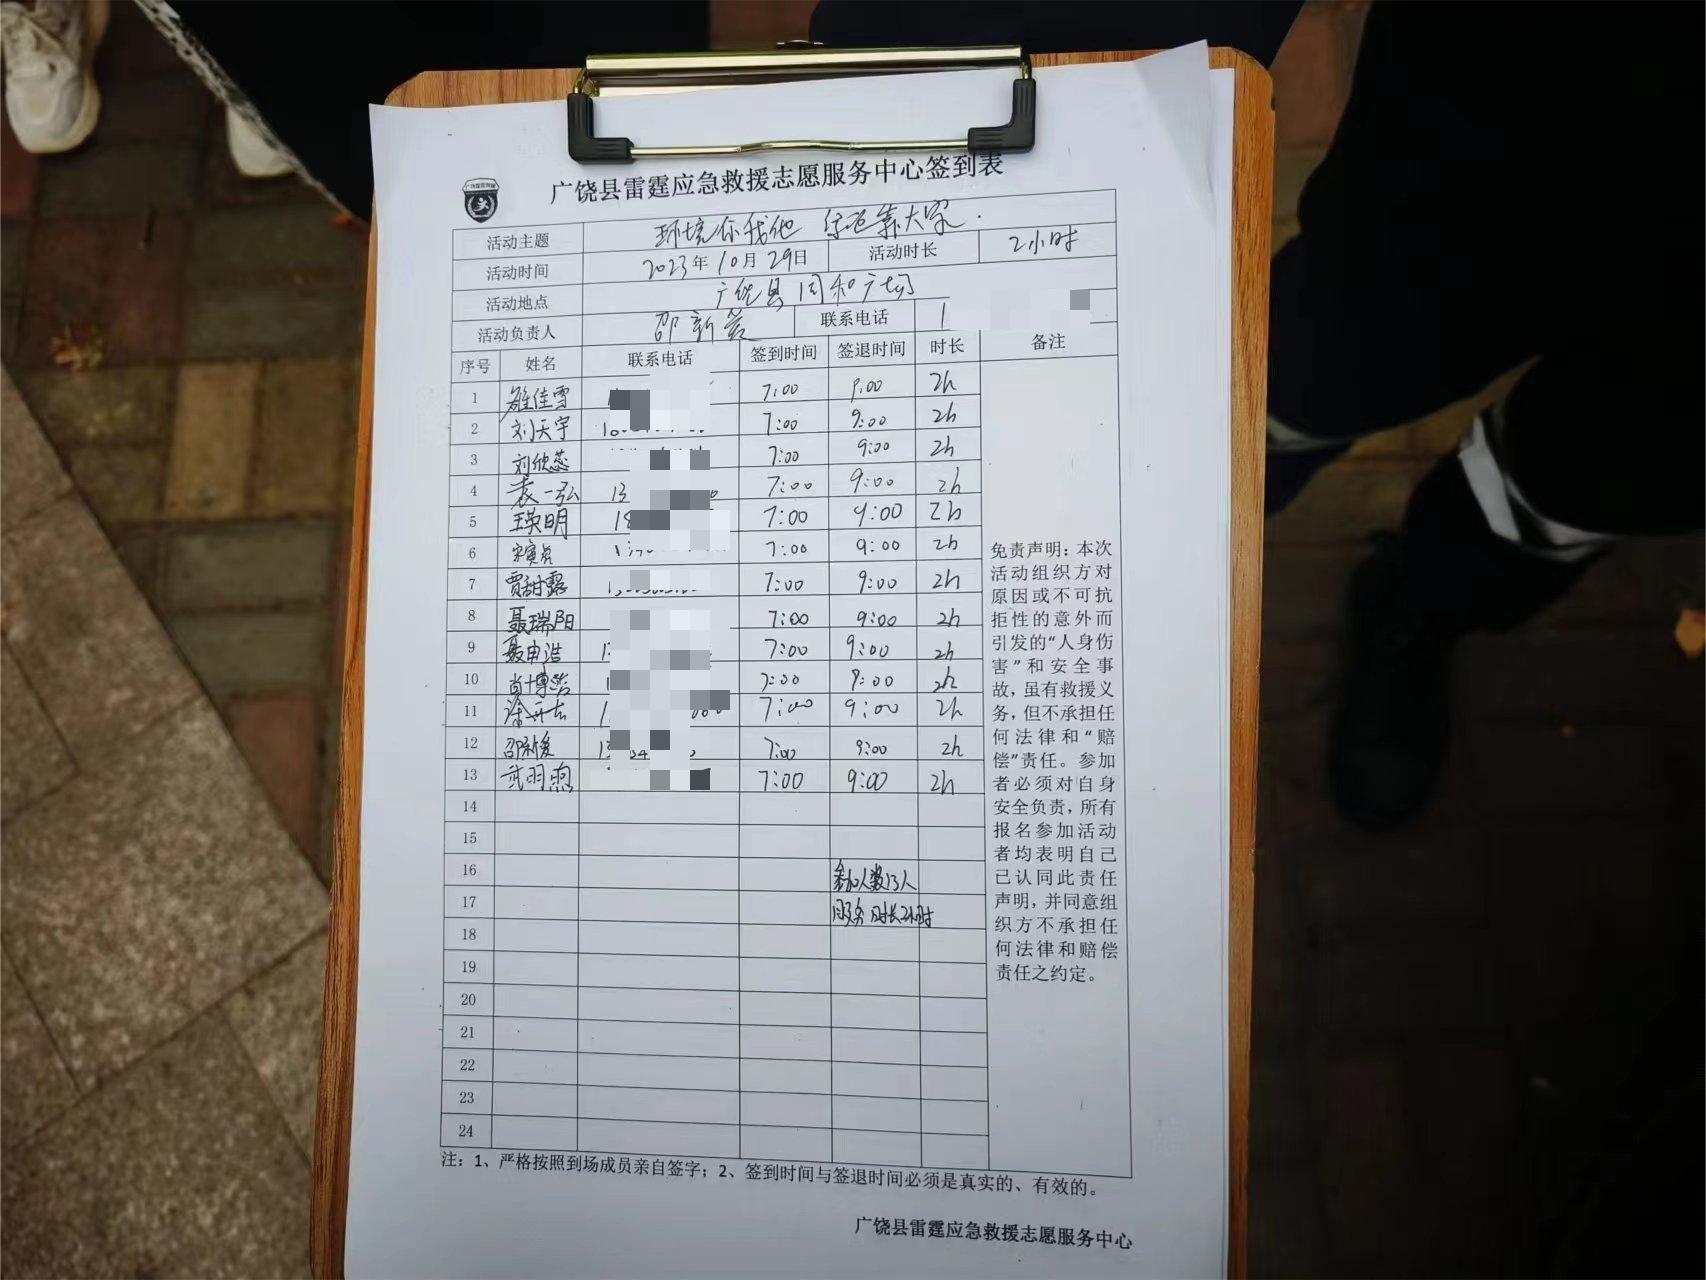 广饶县雷霆应急救援志愿服务中心签到表
活动主题 环境你我他 绿色靠大家.
活动时间 2023年10月29日 活动时长 2小时
活动地点 广饶县同和广场
活动负责人 邵新爱 联系电话 1
序号 姓名 联系电话 签到时间 签退时间 时长 备注
1 雒佳雪 7:00 9:00 2h
2 刘天宇 7:00 9:00 2h
3 刘欣蕊 7:00 9:00 2h
4 袁一弘 13 7:00 9:00 2h
5 王荣明 18 7:00 9:00 2h
6 7:00 9:00 2h
7 贾甜露 7:00 9:00 2h
8 聂瑞阳 7:00 9:00 2h
9 聂申浩 7:00 9:00 2h
10 肖博浩 7:00 9:00 2h
11 7:00 9:00 2h
12 邵新爱 7:00 9:00 2h
13 武羽煦 7:00 9:00 2h
14
15
16 参加人数13人
17 服务时长2小时
18
19
20
21
22
23
24
免责声明：本次
活动组织方对
原因或不可抗
拒性的意外而
引发的“人身伤
害”和安全事
故，虽有救援义
务，但不承担任
何法律和“赔
偿”责任。参加
者必须对自身
安全负责，所有
报名参加活动
者均表明自己
已认同此责任
声明，并同意组
织方不承担任
何法律和赔偿
责任之约定。
注：1、严格按照到场成员亲自签字；2、签到时间与签退时间必须是真实的、有效的。
广饶县雷霆应急救援志愿服务中心